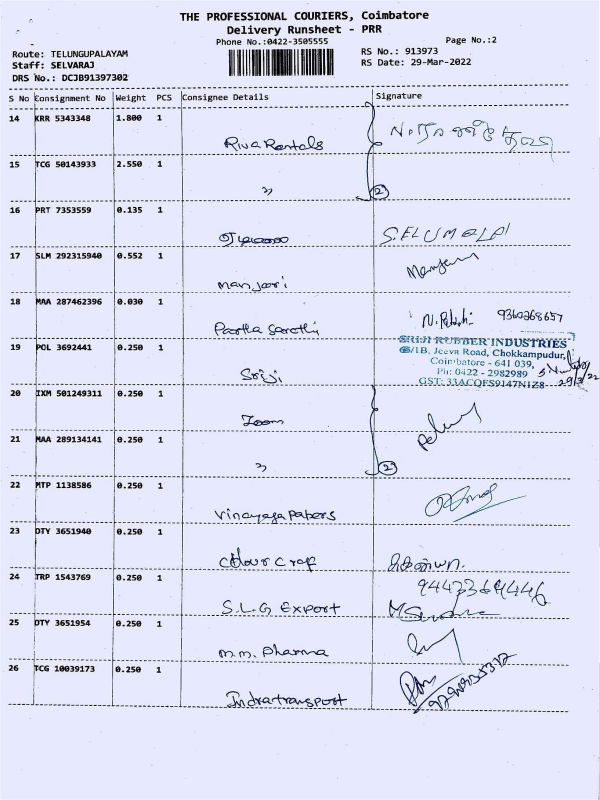 THE PROFESSIONAL COURIERS, Coimbatore
Delivery Runsheet - PRR
Phone No.:0422-3505555
Page No.:2
Route: TELUNGUPALAYAM
RS No.: 913973
Staff: SELVARAJ
RS Date: 29-Mar-2022
DRS No.: DCJB91397302
S No Consignment No Weight PCS Consignee Details Signature
14 KRR 5343348 1.800 1
Riva Rentals
15 TCG 50143933 2.550 1
" 2
16 PRT 7353559 0.135 1
17 SLM 292315940 0.552 1
Manjari
18 MAA 287462396 0.030 1
Partha Sarathi
9360268657
19 POL 3692441 0.250 1
Sriji
SRIJI RUBBER INDUSTRIES
/1B, Jeeva Road, Chokkampudur,
Coimbatore - 641 039,
Ph: 0422 - 2982989
GST: 33ACQFS9147N1Z8
29/3/22
20 IXM 501249311 0.250 1
Zoom
21 MAA 289134141 0.250 1
" 2
22 MTP 1138586 0.250 1
Vinayaga Papers
23 OTY 3651940 0.250 1
Colour Crap
24 TRP 1543769 0.250 1
S.L.G Export
9443369446
25 OTY 3651954 0.250 1
M.M. Pharma
26 TCG 10039173 0.250 1
Indra transport